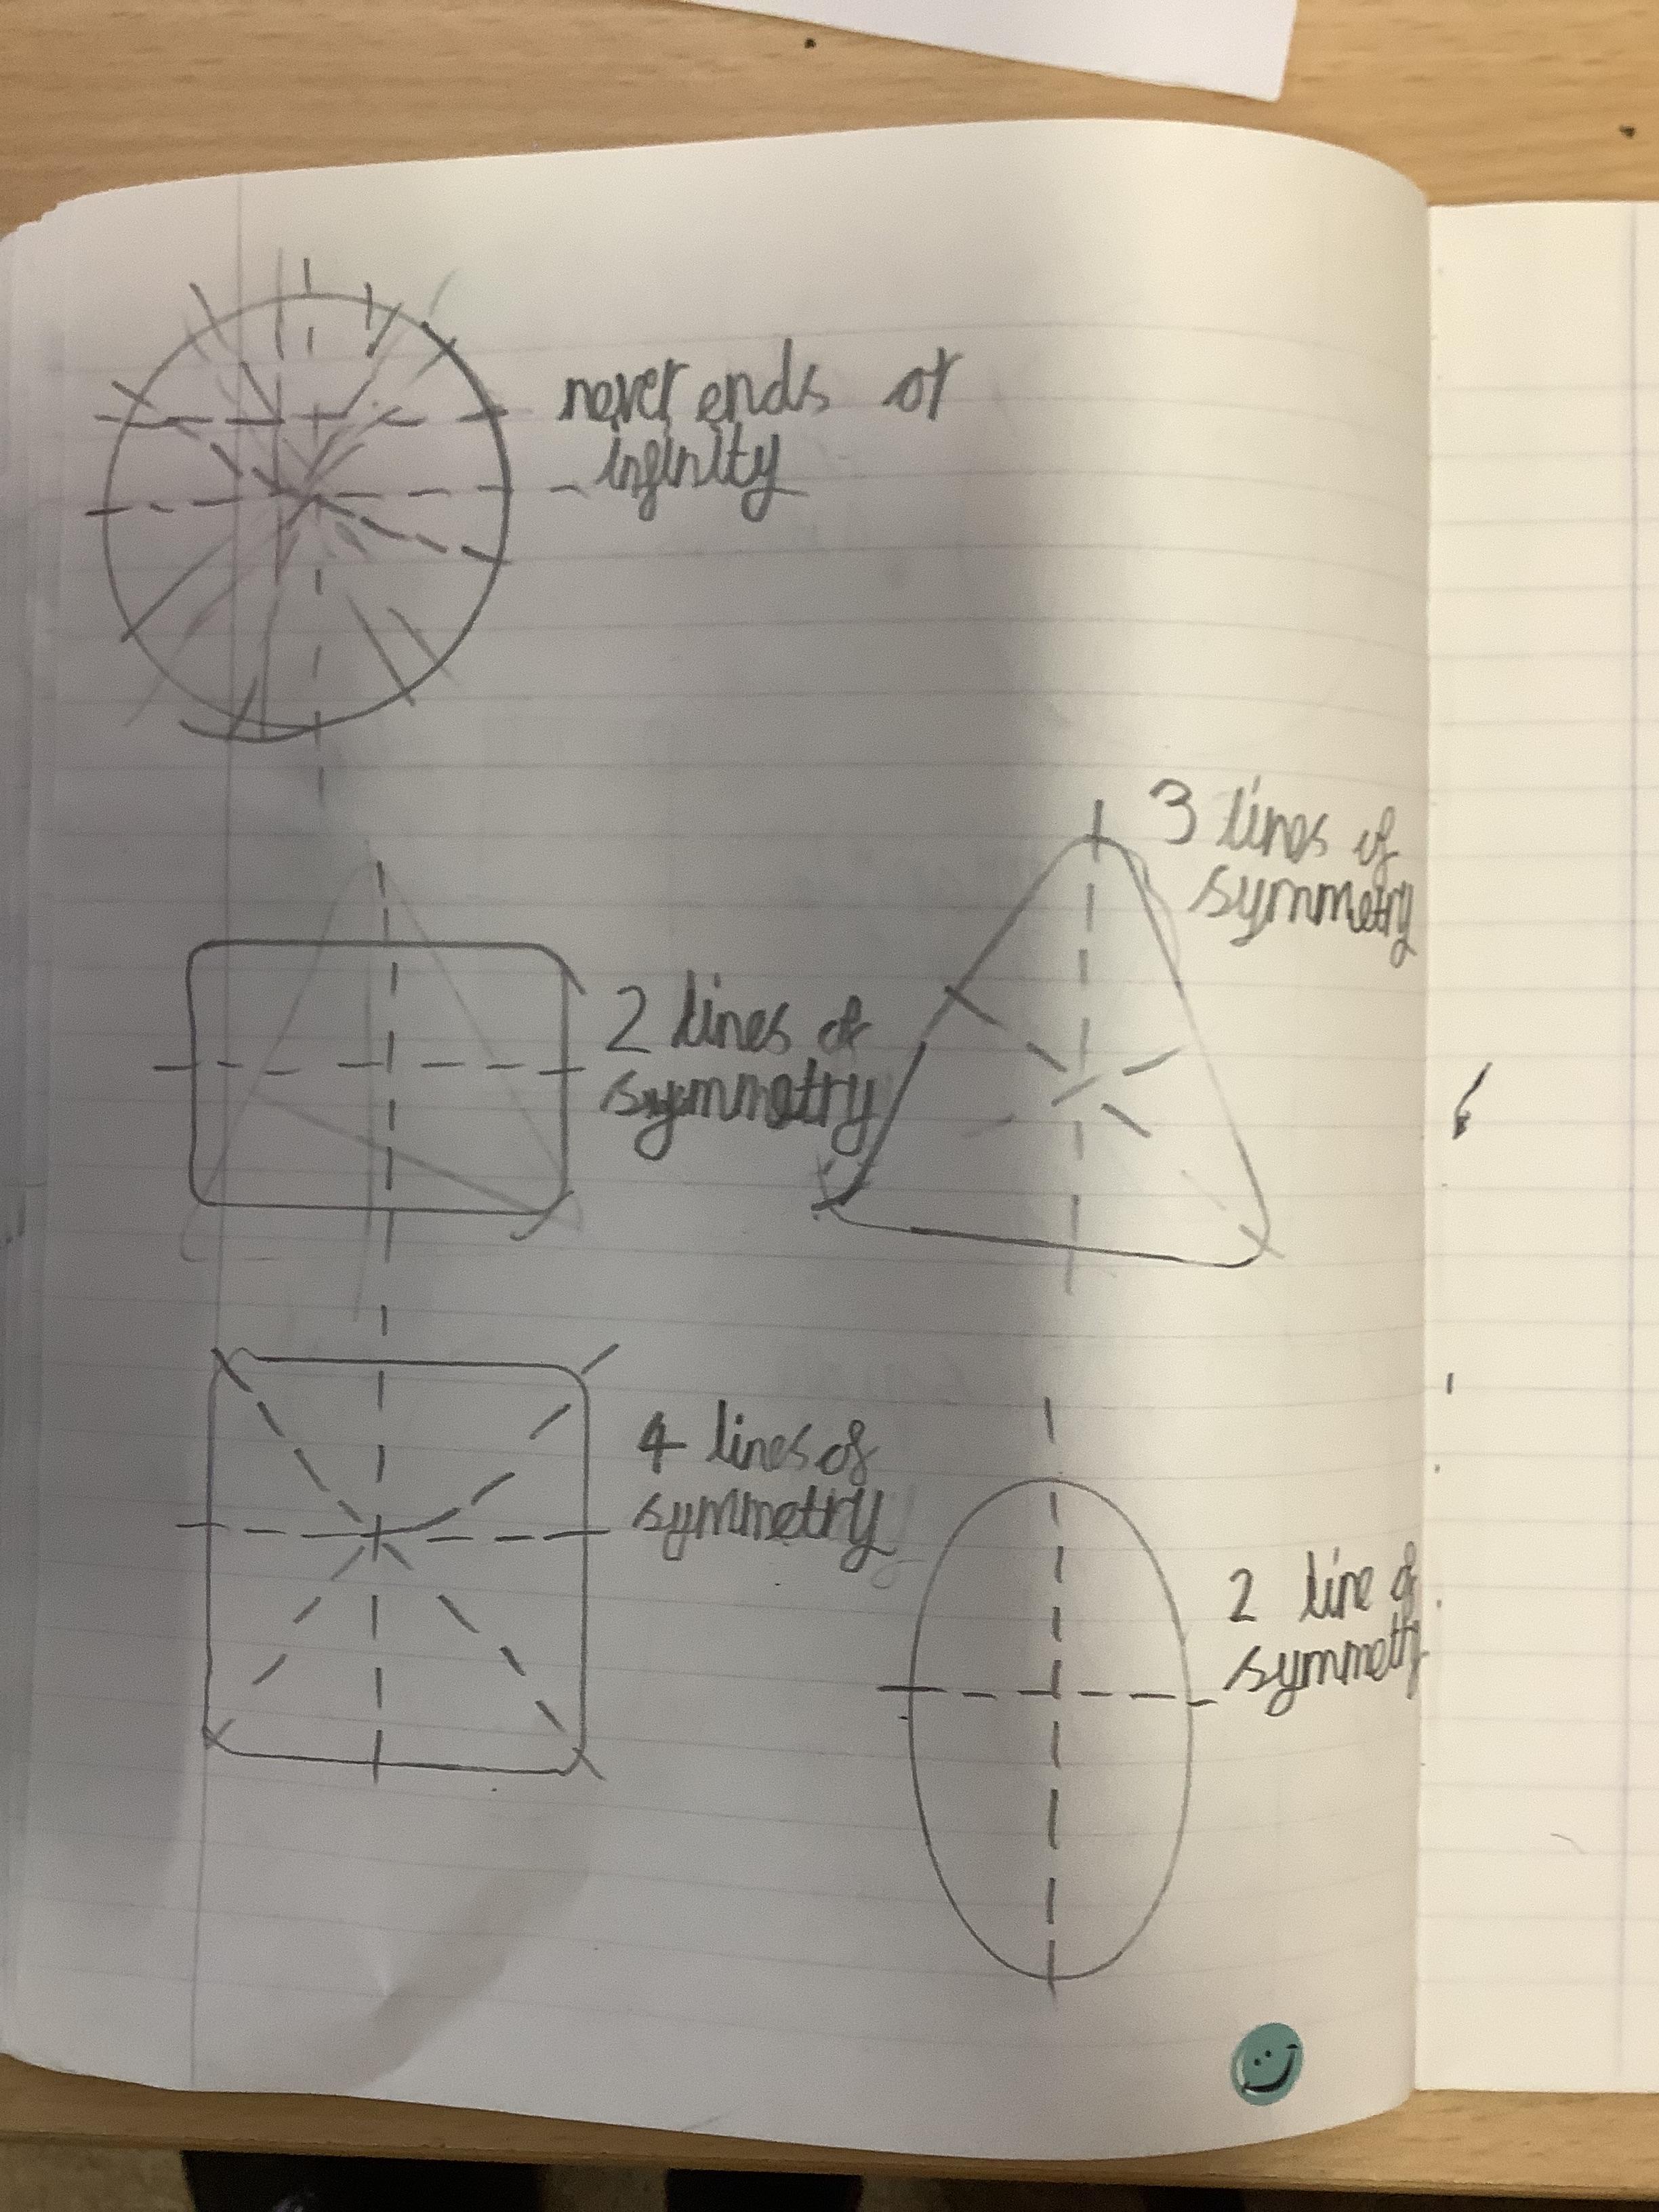 never ends or
infinity
3 lines of
symmetry
2 lines of
symmetry
4 lines of
symmetry
2 line of
symmetry